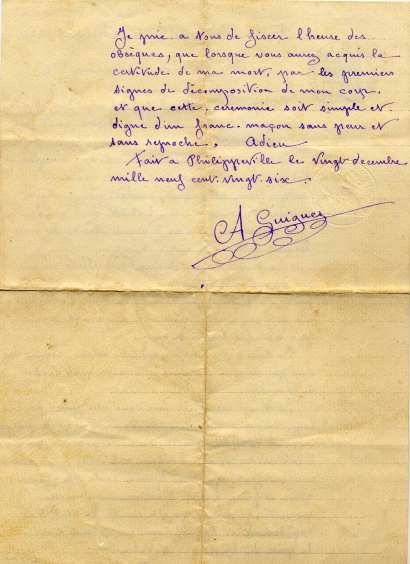 Je prie a Vous de fixer l'heure des
obsèques, que lorsque vous aurez acquis la
certitude de ma mort, par les premiers
signes de décomposition de mon corps.
et que cette, ceremonie soit simple et.
digne d'un franc. maçon sans peur et
sans reproche. Adieu
Fait a Philippeville le vingt decembre
mille neuf cent. vingt. six.
A Guigues